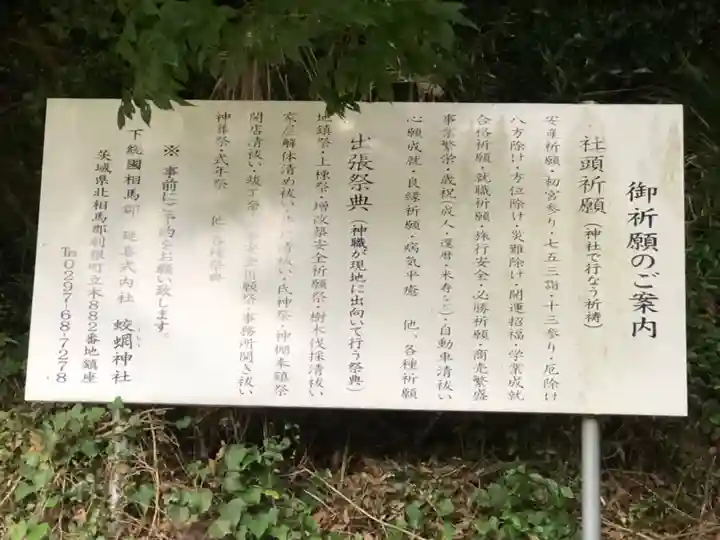 御祈願のご案内
社頭祈願（神社で行なう祈祷）
安産祈願・初宮参り・七五三詣・十三参り・厄除け
八方除け・方位除け・災難除け・開運招福・学業成就
合格祈願・就職祈願・旅行安全・必勝祈願・商売繁盛
事業繁栄・歳祝（成人・還暦・米寿など）・自動車清祓い
心願成就・良縁祈願・病気平癒　他、各種祈願
出張祭典（神職が現地に出向いて行う祭典）
地鎮祭・上棟祭・増改築安全祈願祭・樹木伐採清祓い
家屋解体清め祓い・井戸清祓い・氏神祭・神棚奉鎮祭
開店清祓い・竣工祭・安全祈願祭・事務所開き祓い
神葬祭・式年祭　他、各種祭典
※　事前にご予約をお願い致します。
下総國相馬郡　延喜式内社　蛟蝄神社
茨城県北相馬郡利根町立木882番地鎮座
℡0297-68-7278